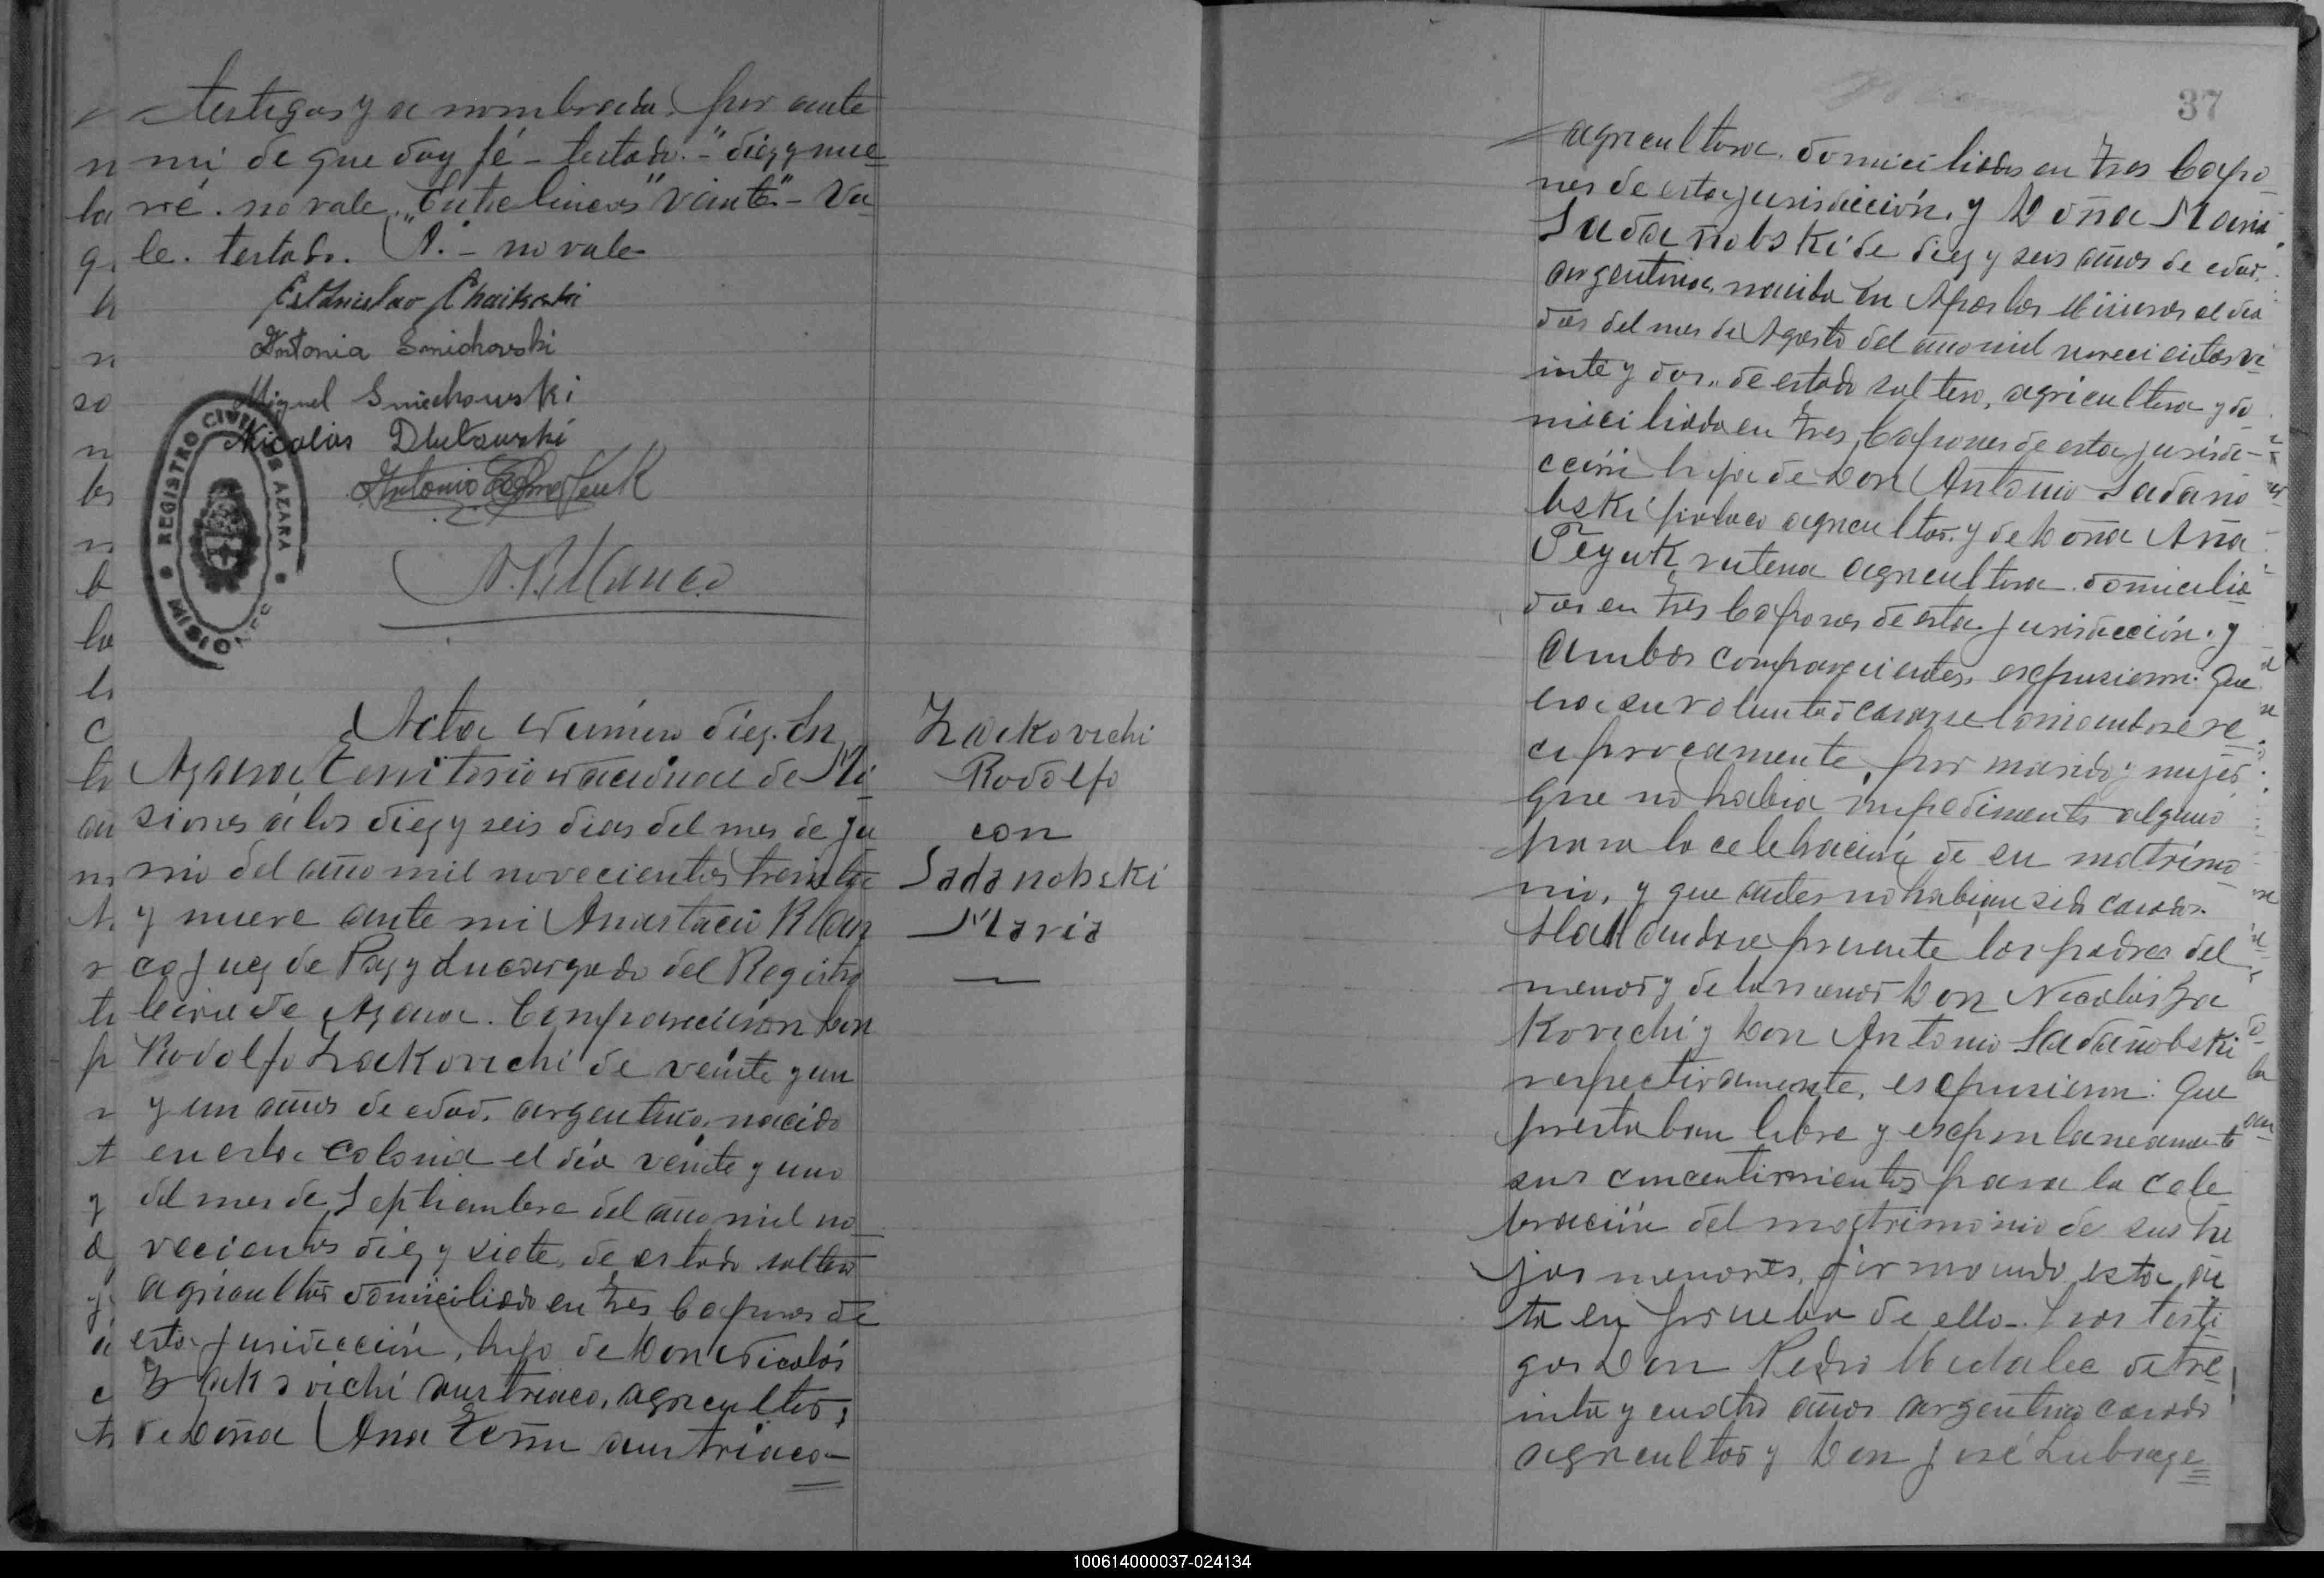 testigos ya nombrados por ante
mi de que doy fé - testado. - "diez y nue
ve. no vale. Entre lineas "veinte" - Va
le. testado. "A." - no vale
Estanislao Chaikoski
Antonia Smichowski
Miguel Smichowski
Nicolas Dlutowski
Antonio
A. Blanco
REGISTRO CIVIL DE AZARA
MISIONES
Acta Número diez. En
Azara Territorio Nacional de Mi
siones á los diez y seis dias del mes de ju
nio del año mil novecientos treinta
y nueve ante mi Anastacio Blan
co Juez de Paz y Encargado del Registro
Civil de Azara. Comparecieron Don
Rodolfo Zakovichi de veinte y un
y un años de edad, argentino, nacido
en esta Colonia el día veinte y uno
del mes de Septiembre del año mil no
vecientos diez y siete, de estado soltero
agricultor domiciliado en Tres Capones de
esta jurisdicción, hijo de Don Nicolás
Zakovichi austriaco, agricultor y
de Doña Ana austriaca
Zackovichi
Rodolfo
con
Sadanobski
Maria
37
agricultora. domiciliados en Tres Capo
nes de esta jurisdicción, y Doña Maria
Sadañobski de diez y seis años de edad.
argentina, nacida en Apostoles Misiones el dia
dos del mes de Agosto del año mil novecientos ve
inte y dos, de estado soltera, agricultora y do
miciliada en Tres Capones de esta jurisdi
cción hija de Don Antonio Sadaño
bski polaco agricultor y de Doña Aña
Teyuk rutena agricultora domicilia
dos en Tres Capones de esta jurisdicción. y
Ambos comparecientes, esepusieron: Que
era su voluntad casarse tomandose re
ciprocamente por marido y mujer
que no habia impedimento alguno
para la celebración de su matrimo
nio, y que antes no habian sido casados.
Hallandose presente los padres del
menor y de la menor Don Nicolás Za
kovichi y Don Antonio Sadañobski
respectivamente, esepusieron: Que
prestaban libre y esepontaneamente
sus concentimientos para la cele
bración del matrimonio de sus hi
jos menores, firmando esta ac
ta en prueba de ello. Los testi
gos Don Pedro Midalec de tre
inta y cuatro años argentino casado
agricultor y Don José Lubrage
100614000037-024134